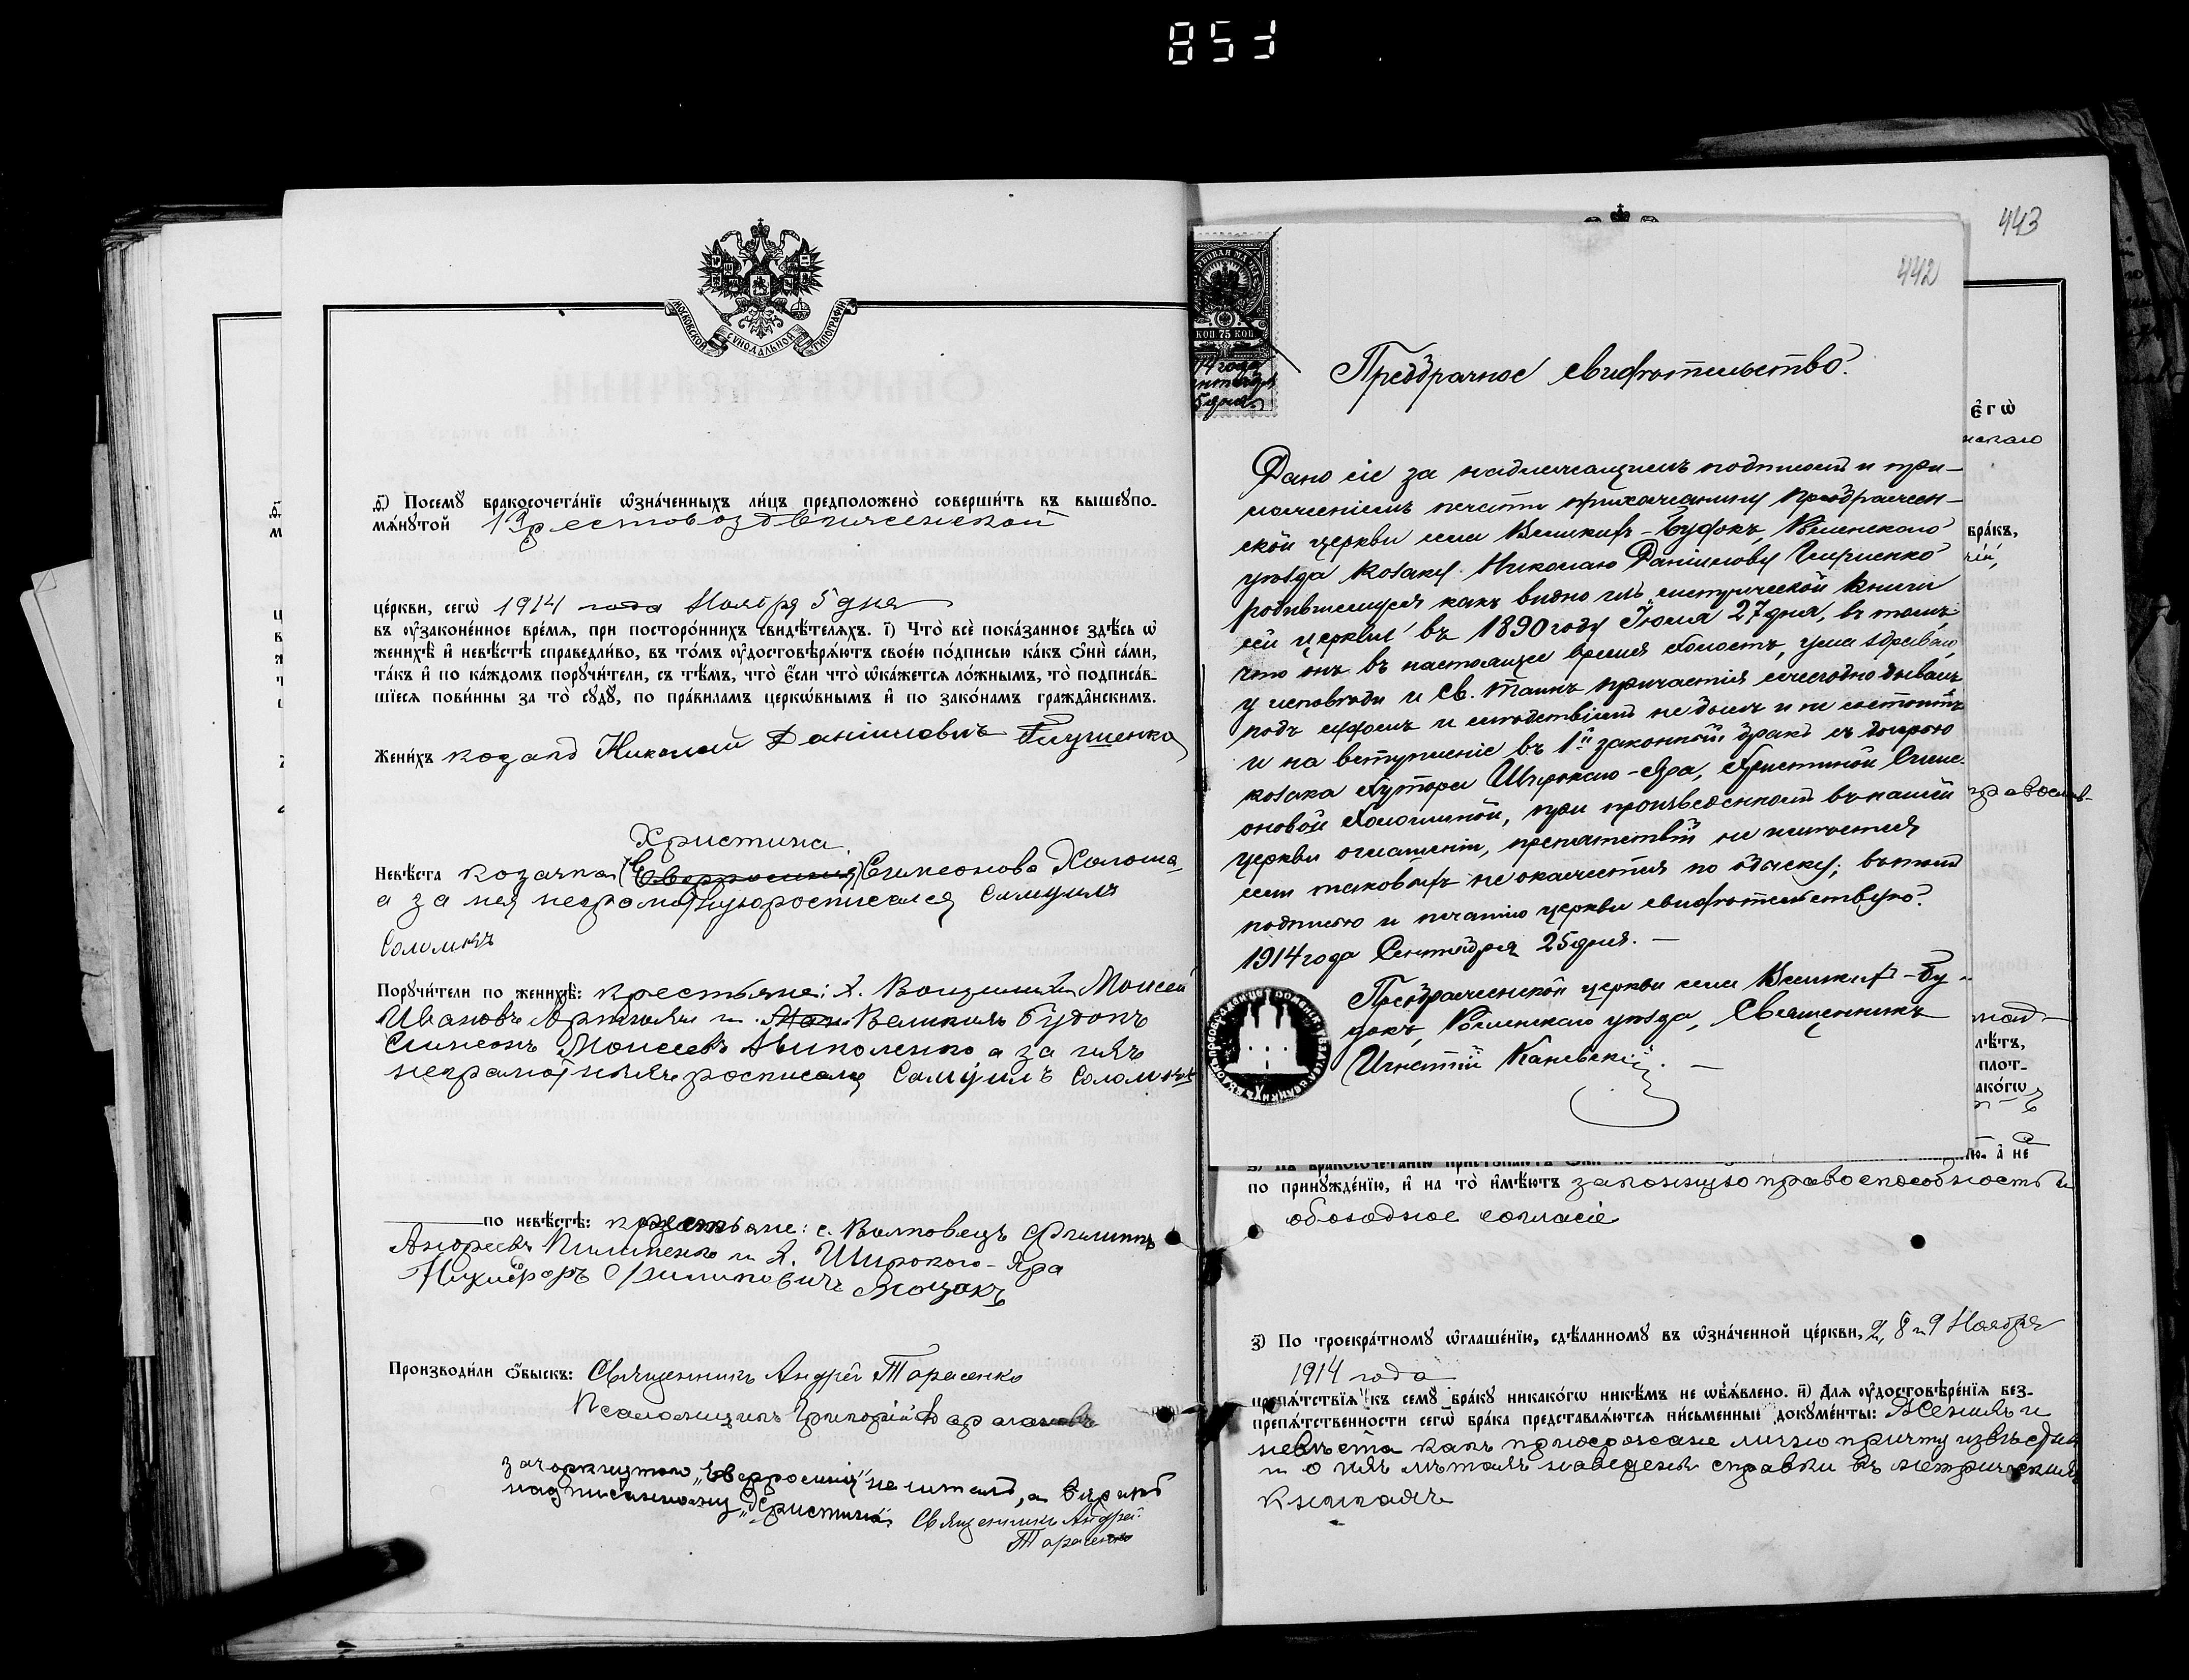 853
МОСКОВСКОЙ СѴНОДАЛЬНОЙ ТИПОГРАФІИ
д҃) Посемꙋ̀ бракосочета́нїе ѡ҆зна́ченныхъ ли́цъ предположено̀ соверши́ть въ вышеꙋпо-
мѧ́нꙋтой Крестовоздвиженской
це́ркви, сегѡ̀ 1914 года Ноября 5 дня
въ ꙋ҆законе́нное вре́мѧ, при посторо́ннихъ свидѣ́телѧхъ. і҃) Что̀ всѐ пока́занное здѣ́сь ѡ҆
женихѣ̀ и҆ невѣ́стѣ справедли́во, въ то́мъ ꙋ҆достовѣрѧ́ютъ свое́ю по́дписью ка́къ ѻ҆нѝ са́ми,
та́къ и҆ по ка́ждомъ порꙋчи́тели, съ тѣ́мъ, что̀ є҆́сли что̀ ѡ҆ка́жетсѧ ло́жнымъ, то̀ подписа́в-
шїесѧ пови́нны за то̀ сꙋдꙋ̀, по пра́виламъ церко́внымъ и҆ по зако́намъ гражда́нскимъ.
Жени́хъ козакъ Николай Даніиловичъ Глущенко
Христина
Невѣ́ста козачка (Евфросинія) Симеонова Холоша
а за нея неграмотную росписался Самуилъ
Соломка
Порꙋчи́тели по женихѣ̀: крестьяне: х. Моисей
Ивановъ и Великихъ Будокъ
Симеонъ Моисеевъ Николенко а за нихъ
неграмотныхъ росписался Самуилъ Соломка
по невѣ́стѣ: крестьяне: с. Волковецъ Филиппъ
Андреевъ Пилипенко и х. Широкого-Яра
Никифоръ Филиповичъ
Производи́ли ѻ҆́быскъ: Священникъ Андрей Тарасенко
Псаломщикъ Григорій
зачеркнутому „Евфросинія" не читать, а вѣрить
надписанному „Христина" Священникъ Андрей
Тарасенко
443
442
КОП 75 КОП
14 года
сентября
25 дня
Предбрачное свидѣтельство.
Дано сіе за надлежащимъ подписомъ и при-
ложеніемъ печати прихожанину Преображен-
ской церкви села Великихъ-Будокъ, Роменскаго
уѣзда козаку Николаю Даніилову Глущенко
родившемуся какъ видно изъ метрической книги
сей церкви въ 1890 году Іюля 27 дня, въ томъ,
что онъ въ настоящее время холостъ, ума здраваго,
у исповѣди и Св. Таинъ причастія ежегодно бывалъ
подъ судомъ и слѣдствіемъ не былъ и не состоитъ
и на вступленіе въ 1й законный бракъ съ дочерью
козака хутора Широкаго-Яра, Христиной Симе-
оновой Холошиной, при произведенномъ въ нашей
церкви оглашеніи, препятствій не имѣется
если таковыхъ не окажется по обыску; въ томъ
подписью и печатію церкви свидѣтельствую.
1914 года Сентября 25 дня. —
Преображенской церкви села Великихъ-Бу-
докъ, Роменскаго уѣзда, Священникъ
Игнатій Каневскій. —
є҆гѡ̀
бра́къ,
православ-
лѣ́тъ,
плот-
ако́гѡ
а҆ не
по принꙋжде́нїю, и҆ на то̀ и҆мѣ́ютъ законную правоспособность и
обоюдное согласіе
з҃) По троекра́тномꙋ ѡ҆глаше́нїю, сдѣ́ланномꙋ въ ѡ҆зна́ченной це́ркви, 2, 8 и 9 Ноября
1914 года
препѧ́тствїѧ къ семꙋ̀ бра́кꙋ никако́гѡ никѣ́мъ не ѡ҆б̾ѧ́влено. и҃) Для ꙋ҆достовѣре́нїѧ без-
препѧ́тственности сегѡ̀ бра́ка представлѧ́ютсѧ пи́сьменные докꙋме́нты: Женихъ и
невѣста какъ прихожане лично причту извѣстны
и о ихъ лѣтахъ наведены справки въ метрическихъ
книгахъ